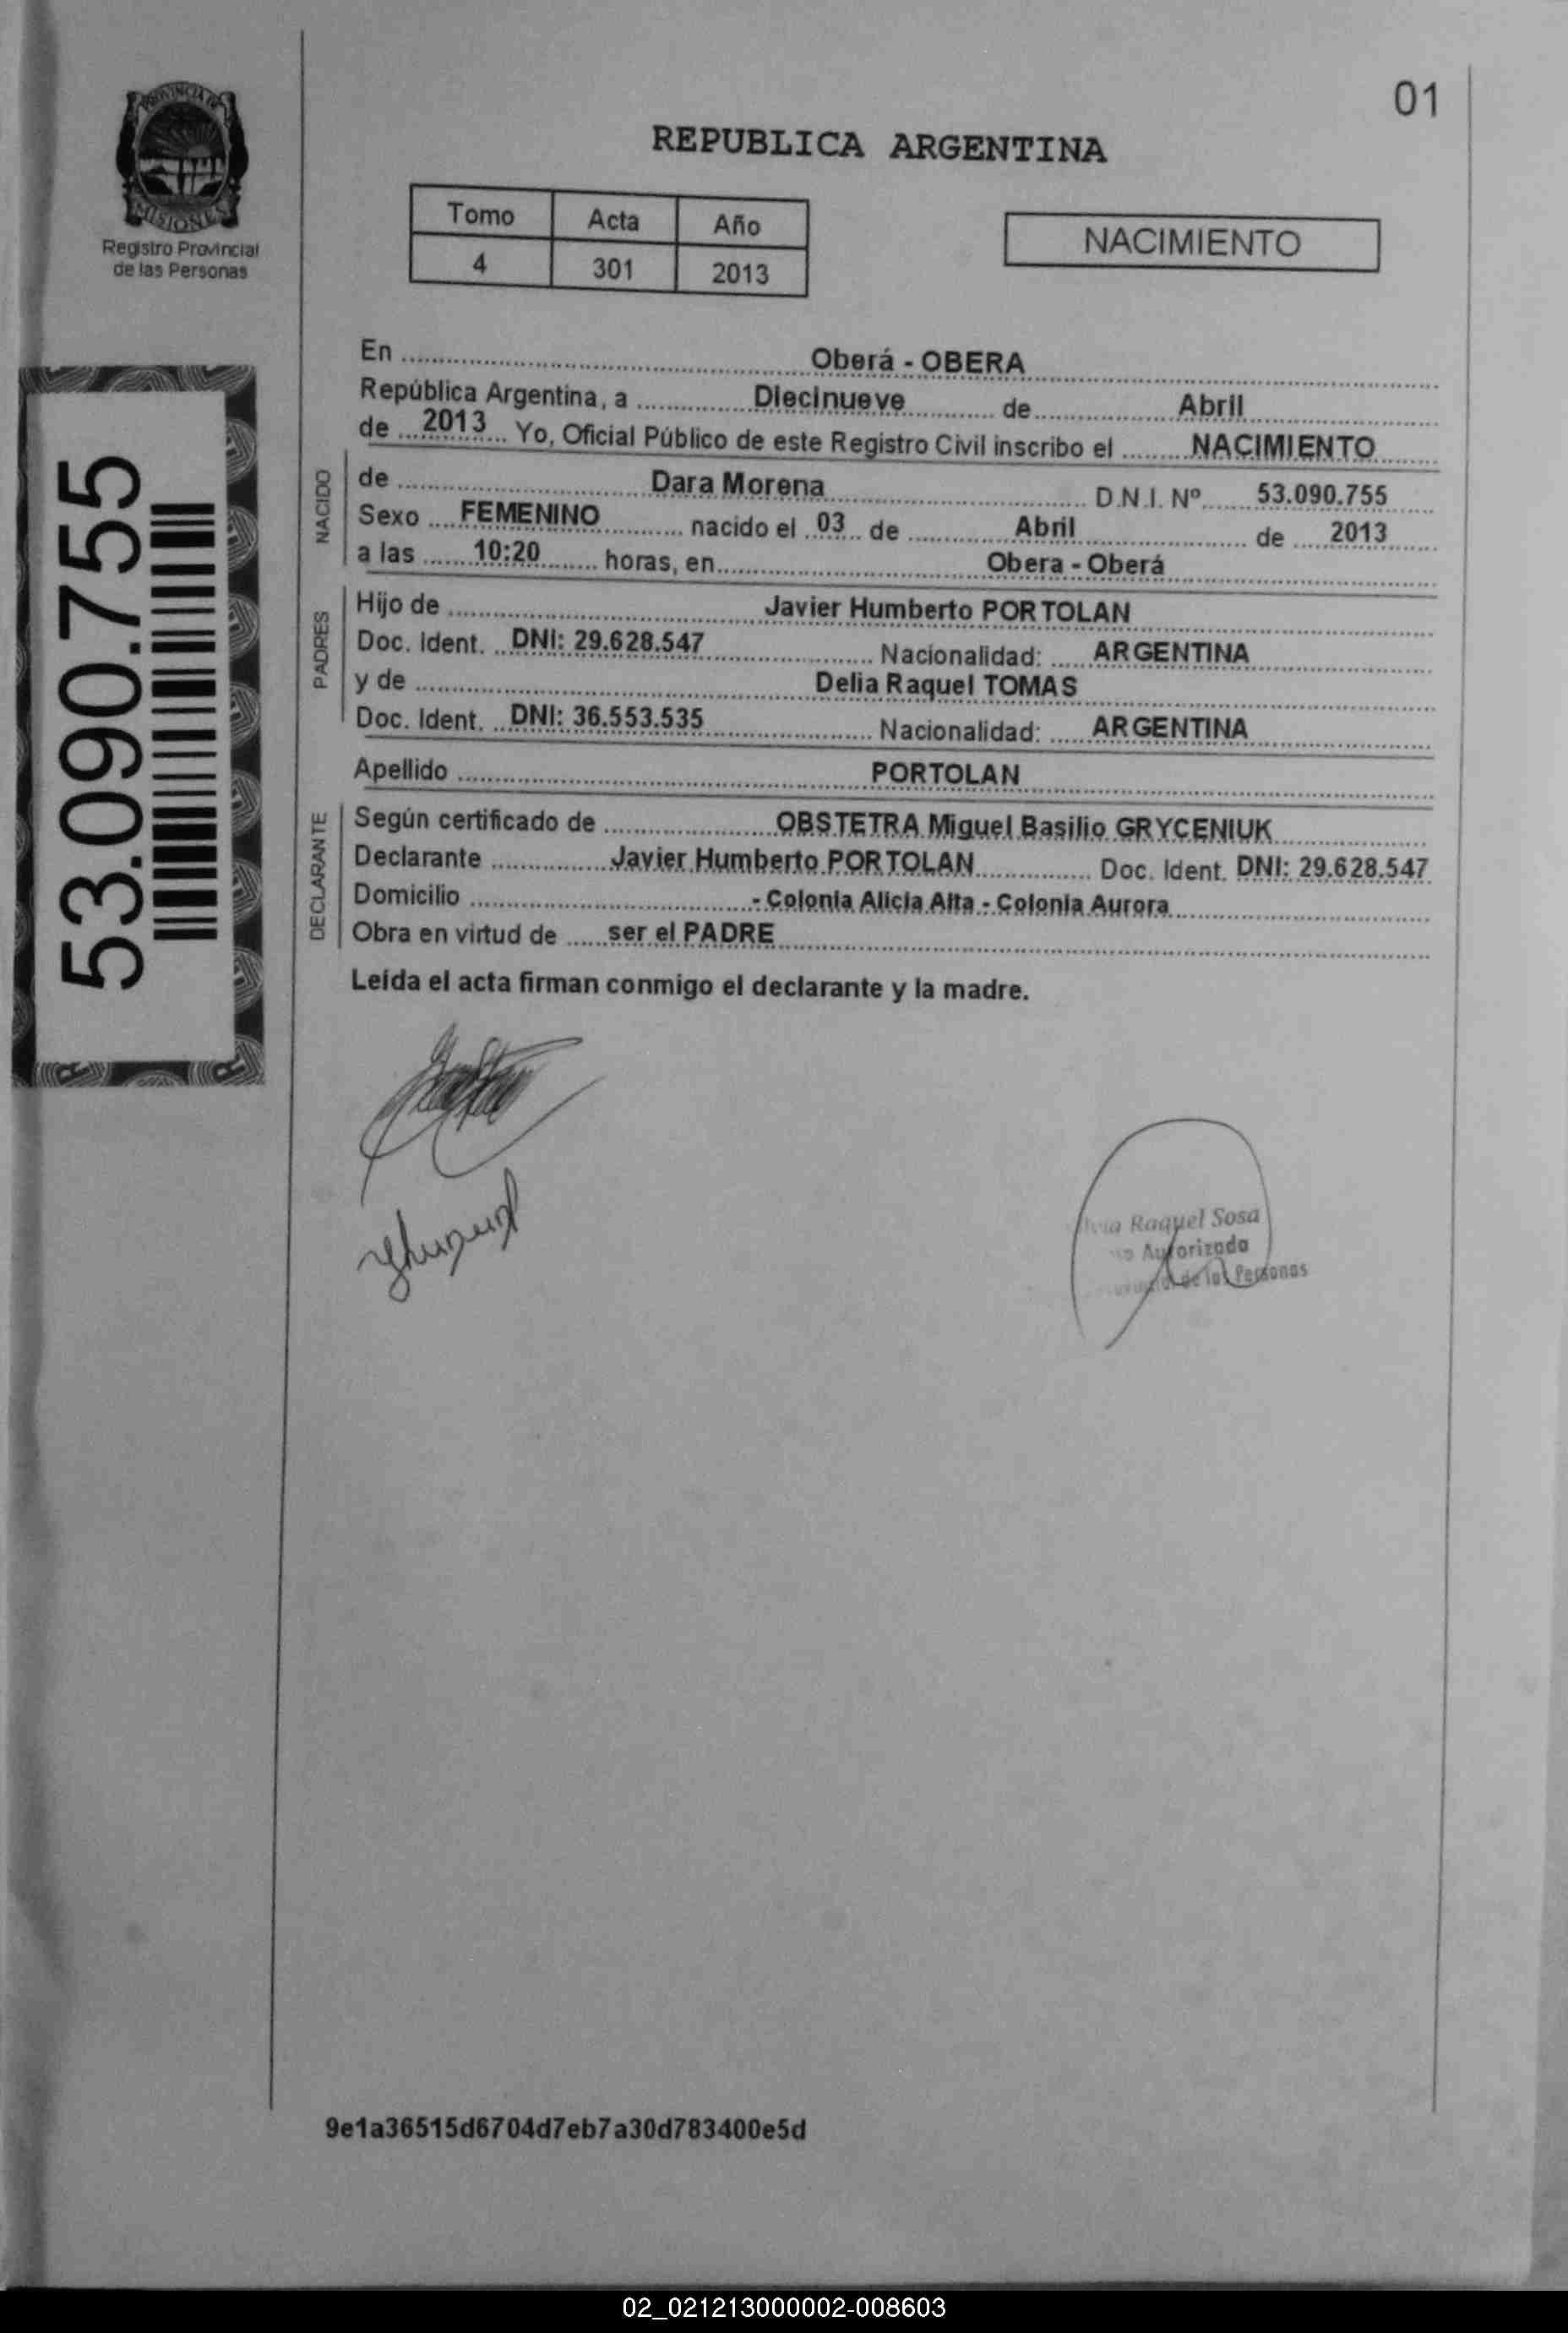 01
REPUBLICA ARGENTINA
PROVINCIA DE
MISIONES
Registro Provincial
de las Personas
Tomo Acta Año
4 301 2013
NACIMIENTO
53.090.755
En Oberá - OBERA
República Argentina, a Diecinueve de Abril
de 2013 Yo, Oficial Público de este Registro Civil inscribo el NACIMIENTO
NACIDO
de Dara Morena D.N.I. Nº 53.090.755
Sexo FEMENINO nacido el 03 de Abril de 2013
a las 10:20 horas, en Obera - Oberá
PADRES
Hijo de Javier Humberto PORTOLAN
Doc. Ident. DNI: 29.628.547 Nacionalidad: ARGENTINA
y de Delia Raquel TOMAS
Doc. Ident. DNI: 36.553.535 Nacionalidad: ARGENTINA
Apellido PORTOLAN
DECLARANTE
Según certificado de OBSTETRA Miguel Basilio GRYCENIUK
Declarante Javier Humberto PORTOLAN Doc. Ident. DNI: 29.628.547
Domicilio - Colonia Alicia Alta - Colonia Aurora
Obra en virtud de ser el PADRE
Leída el acta firman conmigo el declarante y la madre.
Raquel Sosa
Autorizada
de las Personas
9e1a36515d6704d7eb7a30d783400e5d
02_021213000002-008603